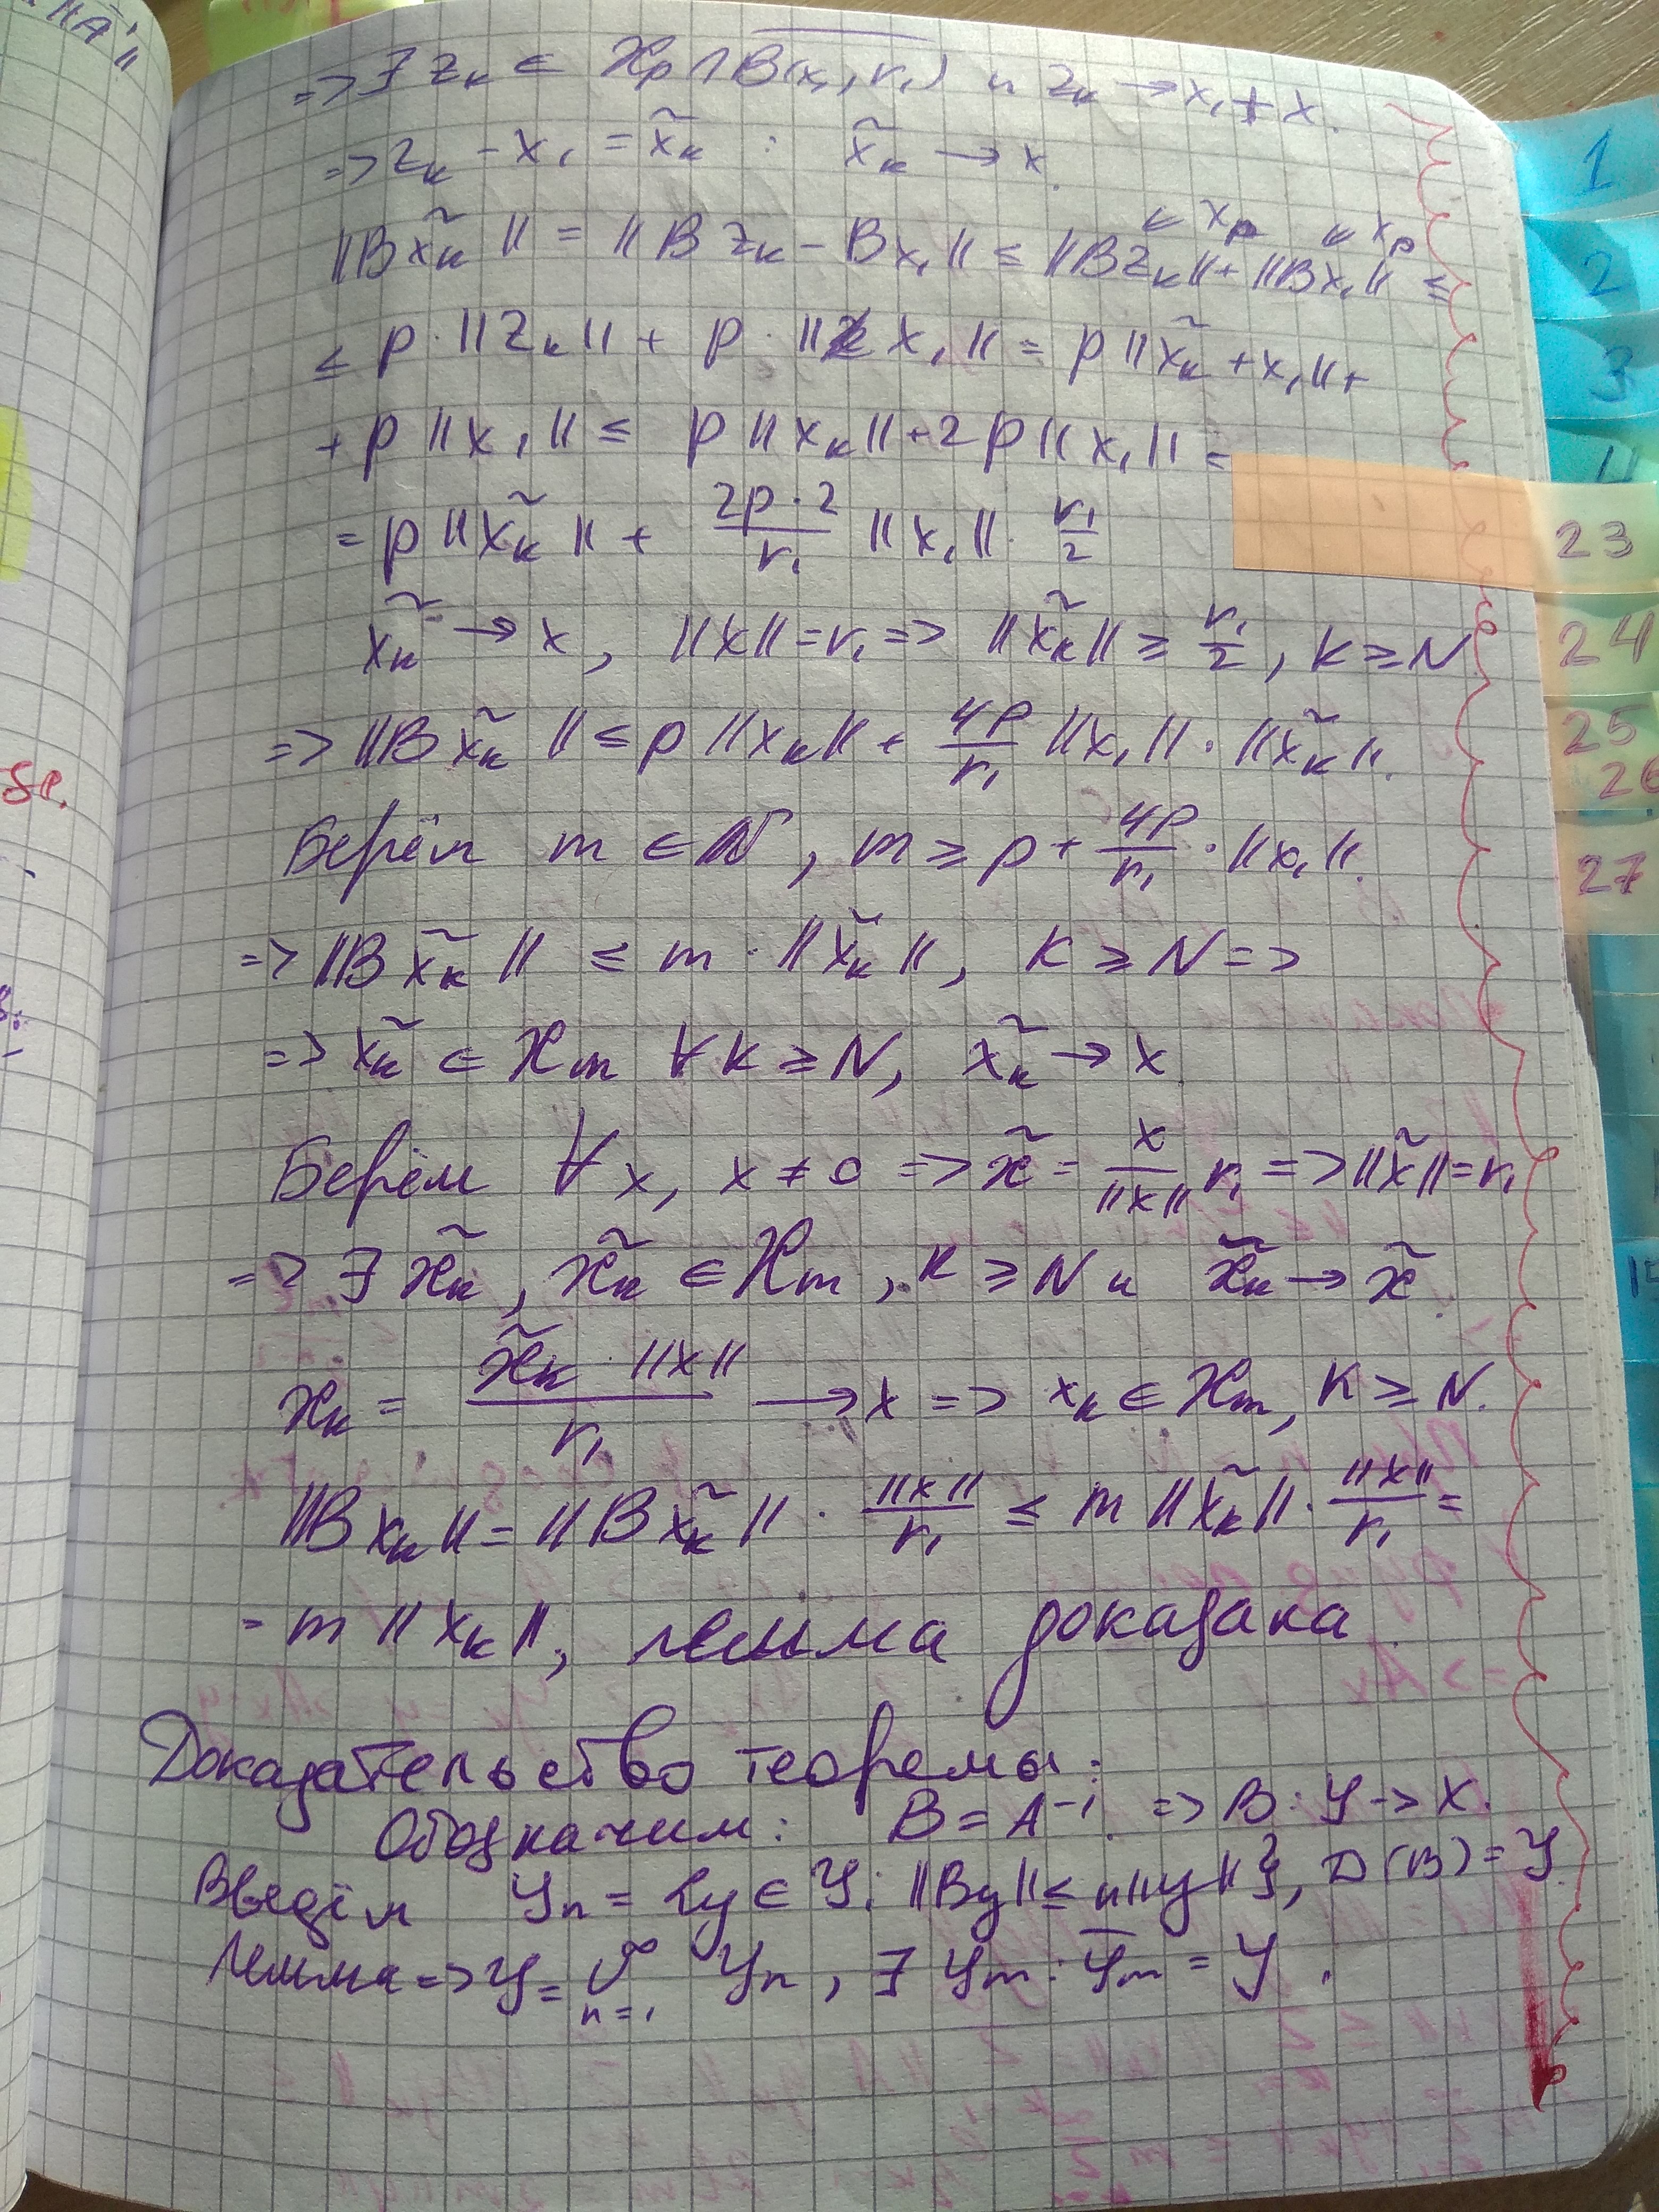 => ∃ z_k ∈ X_p ∩ B̅(x₁, r₁) и z_k → x₁ + x.
=> z_k − x₁ = x̃_k : x̃_k → x.
∈ X_p ∈ X_p
||Bx̃_k|| = ||Bz_k − Bx₁|| ≤ ||Bz_k|| + ||Bx₁|| ≤
≤ p·||z_k|| + p·||x₁|| = p||x̃_k + x₁|| +
+ p||x₁|| ≤ p||x_k|| + 2p||x₁|| =
= p||x̃_k|| + 2p·2/r₁ ||x₁||· r₁/2
x̃_k → x, ||x|| = r₁ => ||x̃_k|| ≥ r₁/2, k ≥ N
=> ||Bx̃_k|| ≤ p||x_k|| + 4p/r₁ ||x₁||·||x̃_k||.
Берём m ∈ N, m ≥ p + 4p/r₁ · ||x₁||.
=> ||Bx̃_k|| ≤ m·||x̃_k||, k ≥ N =>
=> x̃_k ∈ X_m ∀ k ≥ N, x̃_k → x
Берём ∀x, x ≠ 0 => x̃ = x/||x|| r₁ => ||x̃|| = r₁
=> ∃ x̃_k, x̃_k ∈ X_m, k ≥ N и x̃_k → x̃.
x_k = x̃_k·||x||/r₁ → x => x_k ∈ X_m, k ≥ N.
||Bx_k|| = ||Bx̃_k||·||x||/r₁ ≤ m||x̃_k||·||x||/r₁ =
= m||x_k||, лемма доказана.
Доказательство теоремы:
Обозначим: B = A⁻¹ => B: Y → X.
Введём Y_n = {y ∈ Y: ||By|| ≤ n||y||}, D(B) = Y.
Лемма => Y = ∪_{n=1}^∞ Y_n, ∃ Y_m: Y̅_m = Y.
1
2
3
4
23
24
25
26
27